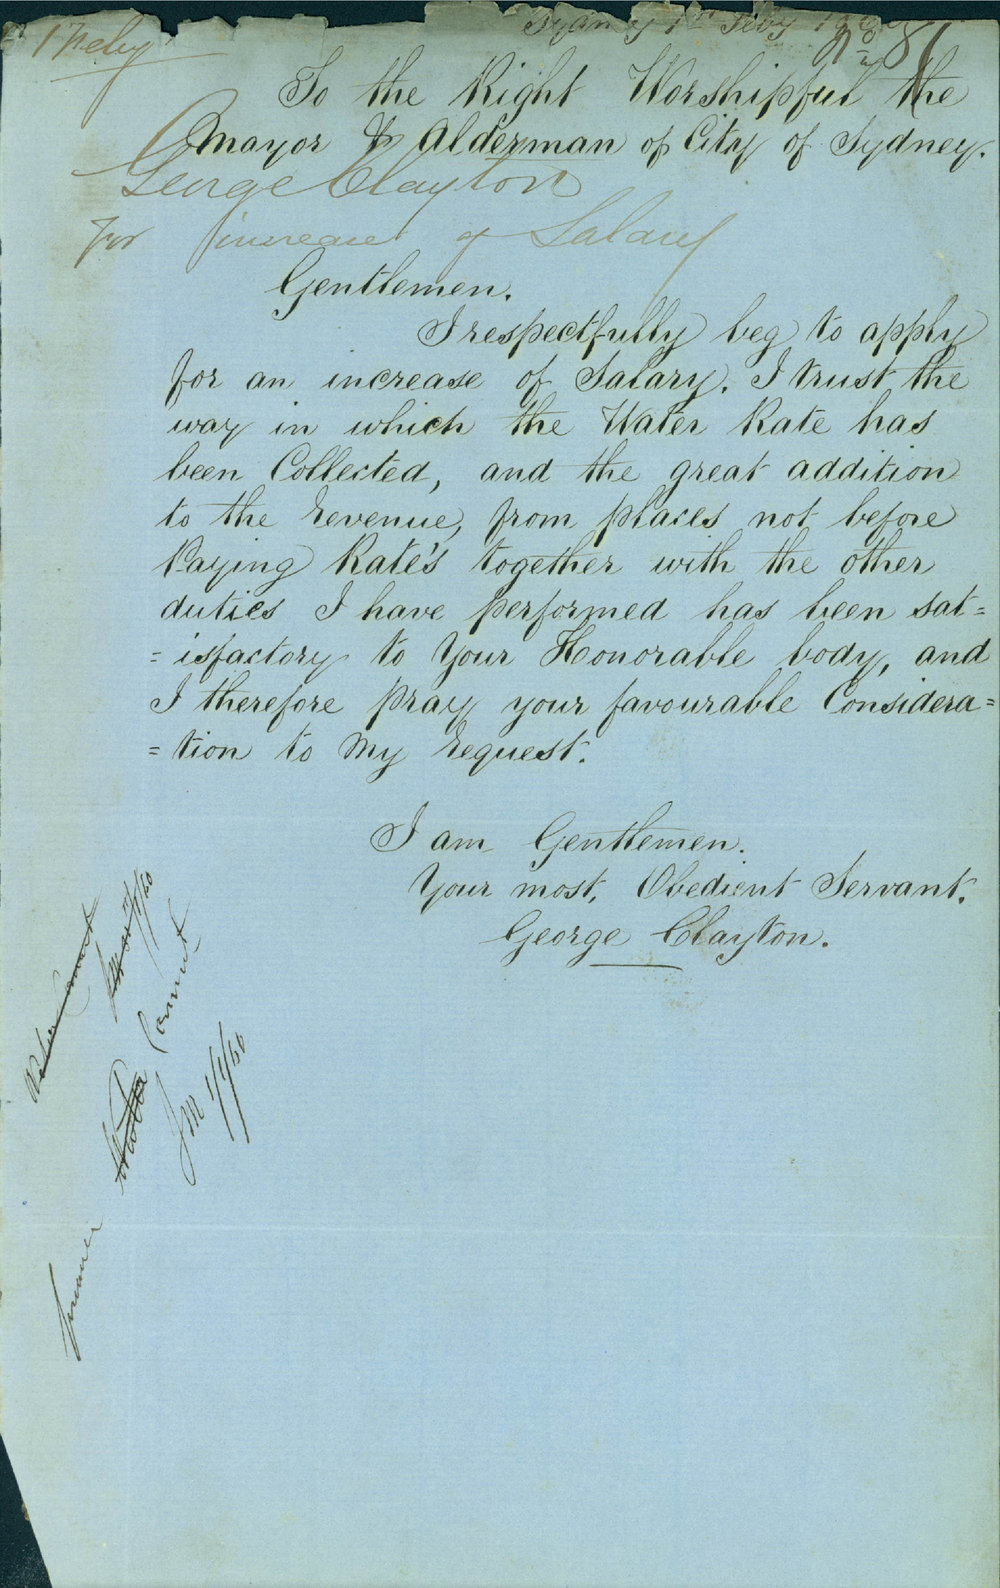 Sydney 1st Feby
1 Feby
81
To the Right Worshipful the
Mayor & Alderman of City of Sydney.
George Clayton
for increase of Salary
Gentlemen.
I respectfully beg to apply
for an increase of Salary. I trust the
way in which the Water Rate has
been Collected, and the great addition
to the revenue, from places not before
Paying Rate's together with the other
duties I have performed has been sat=
=isfactory to Your Honorable body, and
I therefore pray your favourable Considera=
=tion to My request.
I am Gentlemen.
Your most, Obedient Servant.
George Clayton.
Water
JM 1/1/60
Finance